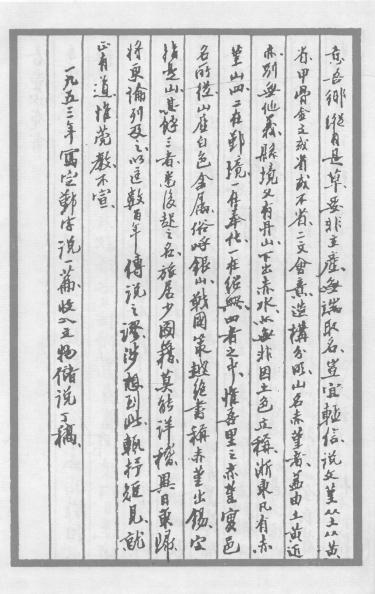 吾鄉縱有是草要非主產無端取名豈宜輕信說文堇从土从黃
省甲骨金文或省或不省二文會意造構分明山名赤堇者並由土黃近
赤別無他義縣境又有丹山下出赤水亦無非因土色立稱浙東凡有赤
堇山四二在鄞境一在奉化一在紹興四者之中惟吾里之赤堇實邑
名所從山產白色金屬俗呼銀山戰國策越絕書稱赤堇出錫實
指是山其餘三者悉後起之名旅居少圖籍莫能詳稽異日東歸
將更論列及之以匡數百年傳說之謬涉想到此輒抒短見就
正有道惟莞教不宣
一九五三年寫定鄞字說一篇收入五物儲說丁稿